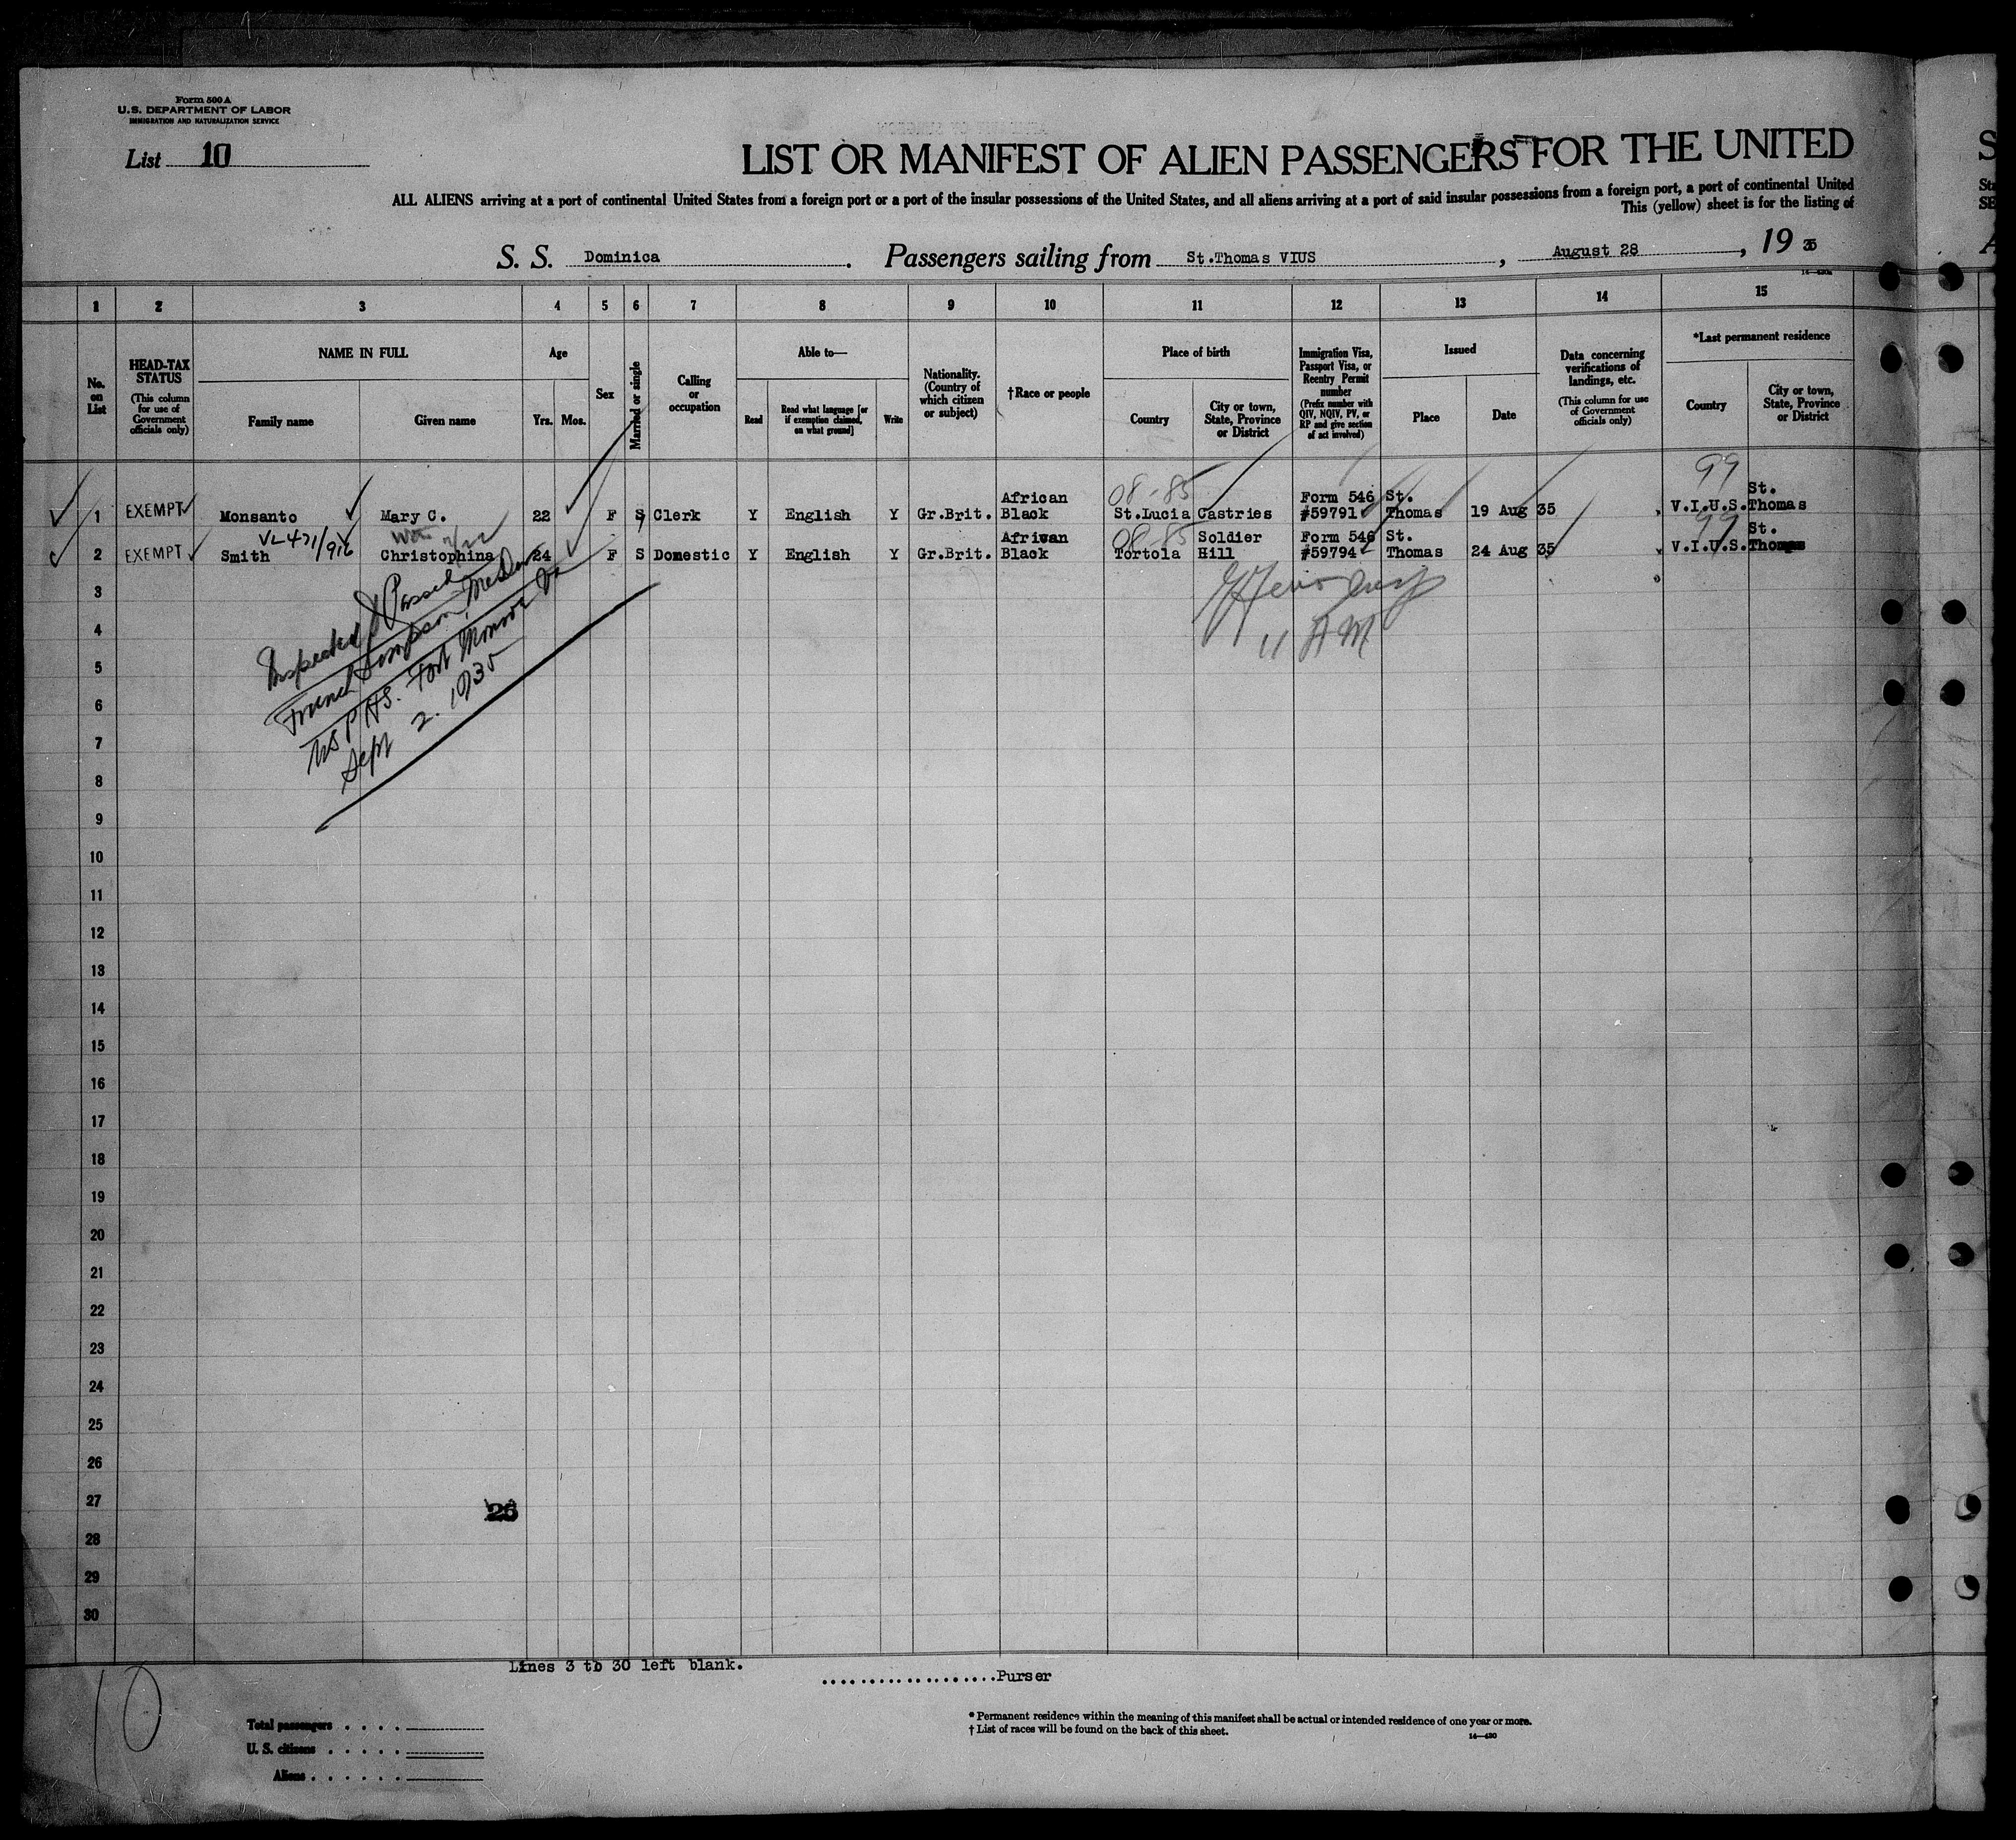 Form 500 A
U.S. DEPARTMENT OF LABOR
IMMIGRATION AND NATURALIZATION SERVICE
List 10
LIST OR MANIFEST OF ALIEN PASSENGERS FOR THE UNITED
ALL ALIENS arriving at a port of continental United States from a foreign port or a port of the insular possessions of the United States, and all aliens arriving at a port of said insular possessions from a foreign port, a port of continental United
This (yellow) sheet is for the listing of
S. S. Dominica. Passengers sailing from St.Thomas VIUS, August 28, 19 35
1 2 3 4 5 6 7 8 9 10 11 12 13 14 15
No. on List
HEAD-TAX STATUS (This column for use of Government officials only)
NAME IN FULL
Family name
Given name
Age
Yrs. Mos.
Sex
Married or single
Calling or occupation
Able to—
Read
Read what language [or if exemption claimed, on what ground]
Write
Nationality. (Country of which citizen or subject)
†Race or people
Place of birth
Country
City or town, State, Province or District
Immigration Visa, Passport Visa, or Reentry Permit number (Prefix number with QIV, NQIV, PV, or RP and give section of act involved)
Issued
Place
Date
Data concerning verifications of landings, etc. (This column for use of Government officials only)
*Last permanent residence
Country
City or town, State, Province or District
08-85 99
African Form 546 St. St.
1 EXEMPT Monsanto Mary C. 22 F S Clerk Y English Y Gr.Brit. Black St.Lucia Castries #59791 Thomas 19 Aug 35 V.I.U.S. Thomas
VL-471/916 08-85 99
Afriwan Soldier Form 546 St. St.
2 EXEMPT Smith Christophina 24 F S Domestic Y English Y Gr.Brit. Black Tortola Hill #59794 Thomas 24 Aug 35 V.I.U.S. Thomas
Inspected & Passed
French Simpson
US PHS. Fort Monroe Va
Sept 2. 1935
11 AM
3
4
5
6
7
8
9
10
11
12
13
14
15
16
17
18
19
20
21
22
23
24
25
26
27
28
29
30
Lines 3 to 30 left blank.
....................Purser
10
Total passengers . . . .
U. S. citizens . . . . .
Aliens . . . . . .
* Permanent residence within the meaning of this manifest shall be actual or intended residence of one year or more.
† List of races will be found on the back of this sheet.
14—430